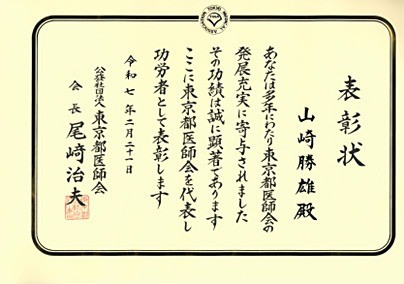 表彰状
山崎勝雄殿
あなたは多年にわたり東京都医師会の
発展充実に寄与されました
その功績は誠に顕著であります
ここに東京都医師会を代表し
功労者として表彰します
令和七年二月二十一日
公益社団法人東京都医師会
会長尾﨑治夫